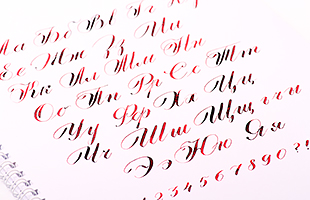 Аа Бб Вв Гг
Ее Жж Зз Ии
Кк Лл Мм Нн
Оо Пп Рр Сс Тт
Уу Фф Хх Цц
Чч Шш Щщ
Ээ Юю Яя
1234567890?!